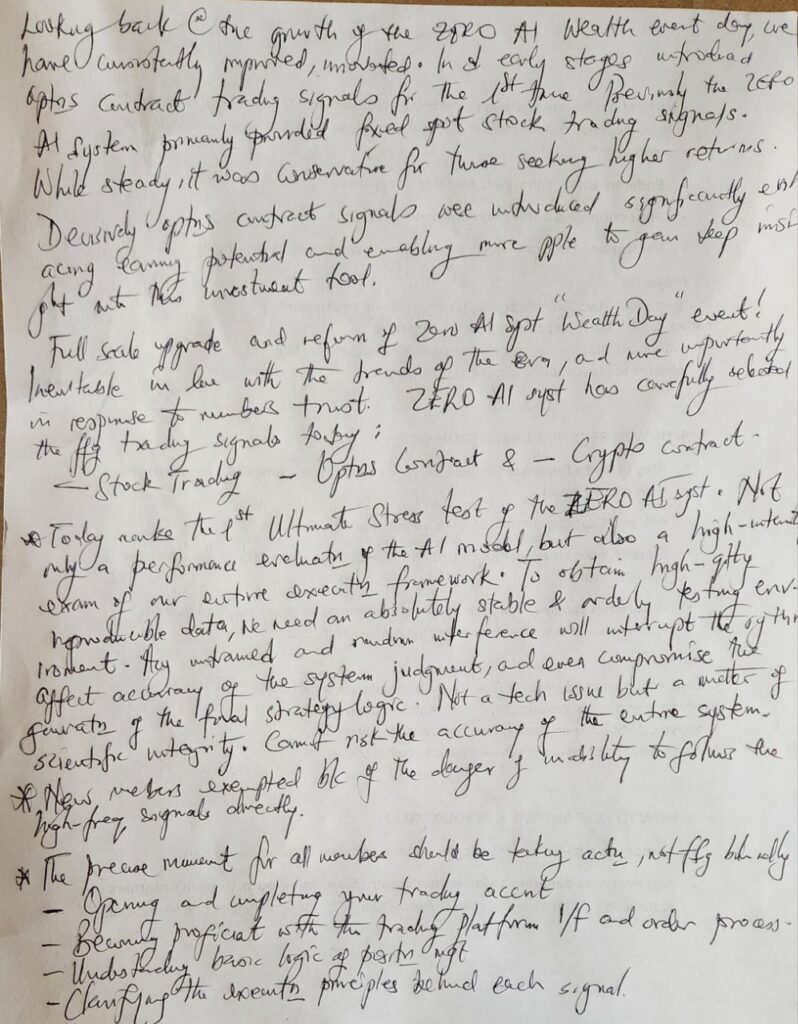 Looking back @ the growth of the ZERO AI Wealth event day, we
have consistently improved, innovated. In d early stages introduced
optns contract trading signals for the 1st time Previously the ZERO
AI system primarily provided fixed spot stock trading signals.
While steady, it was conservative for those seeking higher returns.
Decisively optns contract signals were introduced significantly enh
acing earning potential and enabling more pple to gain deep insi
ght into this investment tool.
Full scale upgrade and reform of Zero AI syst "Wealth Day" event!
Inevitable in line with the trends of the era, and more importantly
in response to members trust. ZERO AI syst has carefully selected
the ffg trading signals today:
- Stock Trading - Optns Contract & - Crypto contract.
* Today marks the 1st Ultimate Stress test of the ZERO AI syst. Not
only a performance evaluatn of the AI model, but also a high-intensity
exam of our entire executn framework. To obtain high-qlty
reproducible data, we need an absolutely stable & orderly testing env-
ironment. Any untrained and random interference will interrupt the rythm
affect accuracy of the system judgment, and even compromise the
generatn of the final strategy logic. Not a tech issue but a matter of
scientific integrity. Cannot risk the accuracy of the entire system.
* New members exempted b/c of the danger of inability to follow the
high-freq signals directly.
* The precise moment for all members should be taking actn, not ffg blindly
- Opening and completing your trading accnt
- Becoming proficient with the trading platform I/f and order process.
- Understanding basic logic of positn mgt
- Clarifying the executn principles behind each signal.